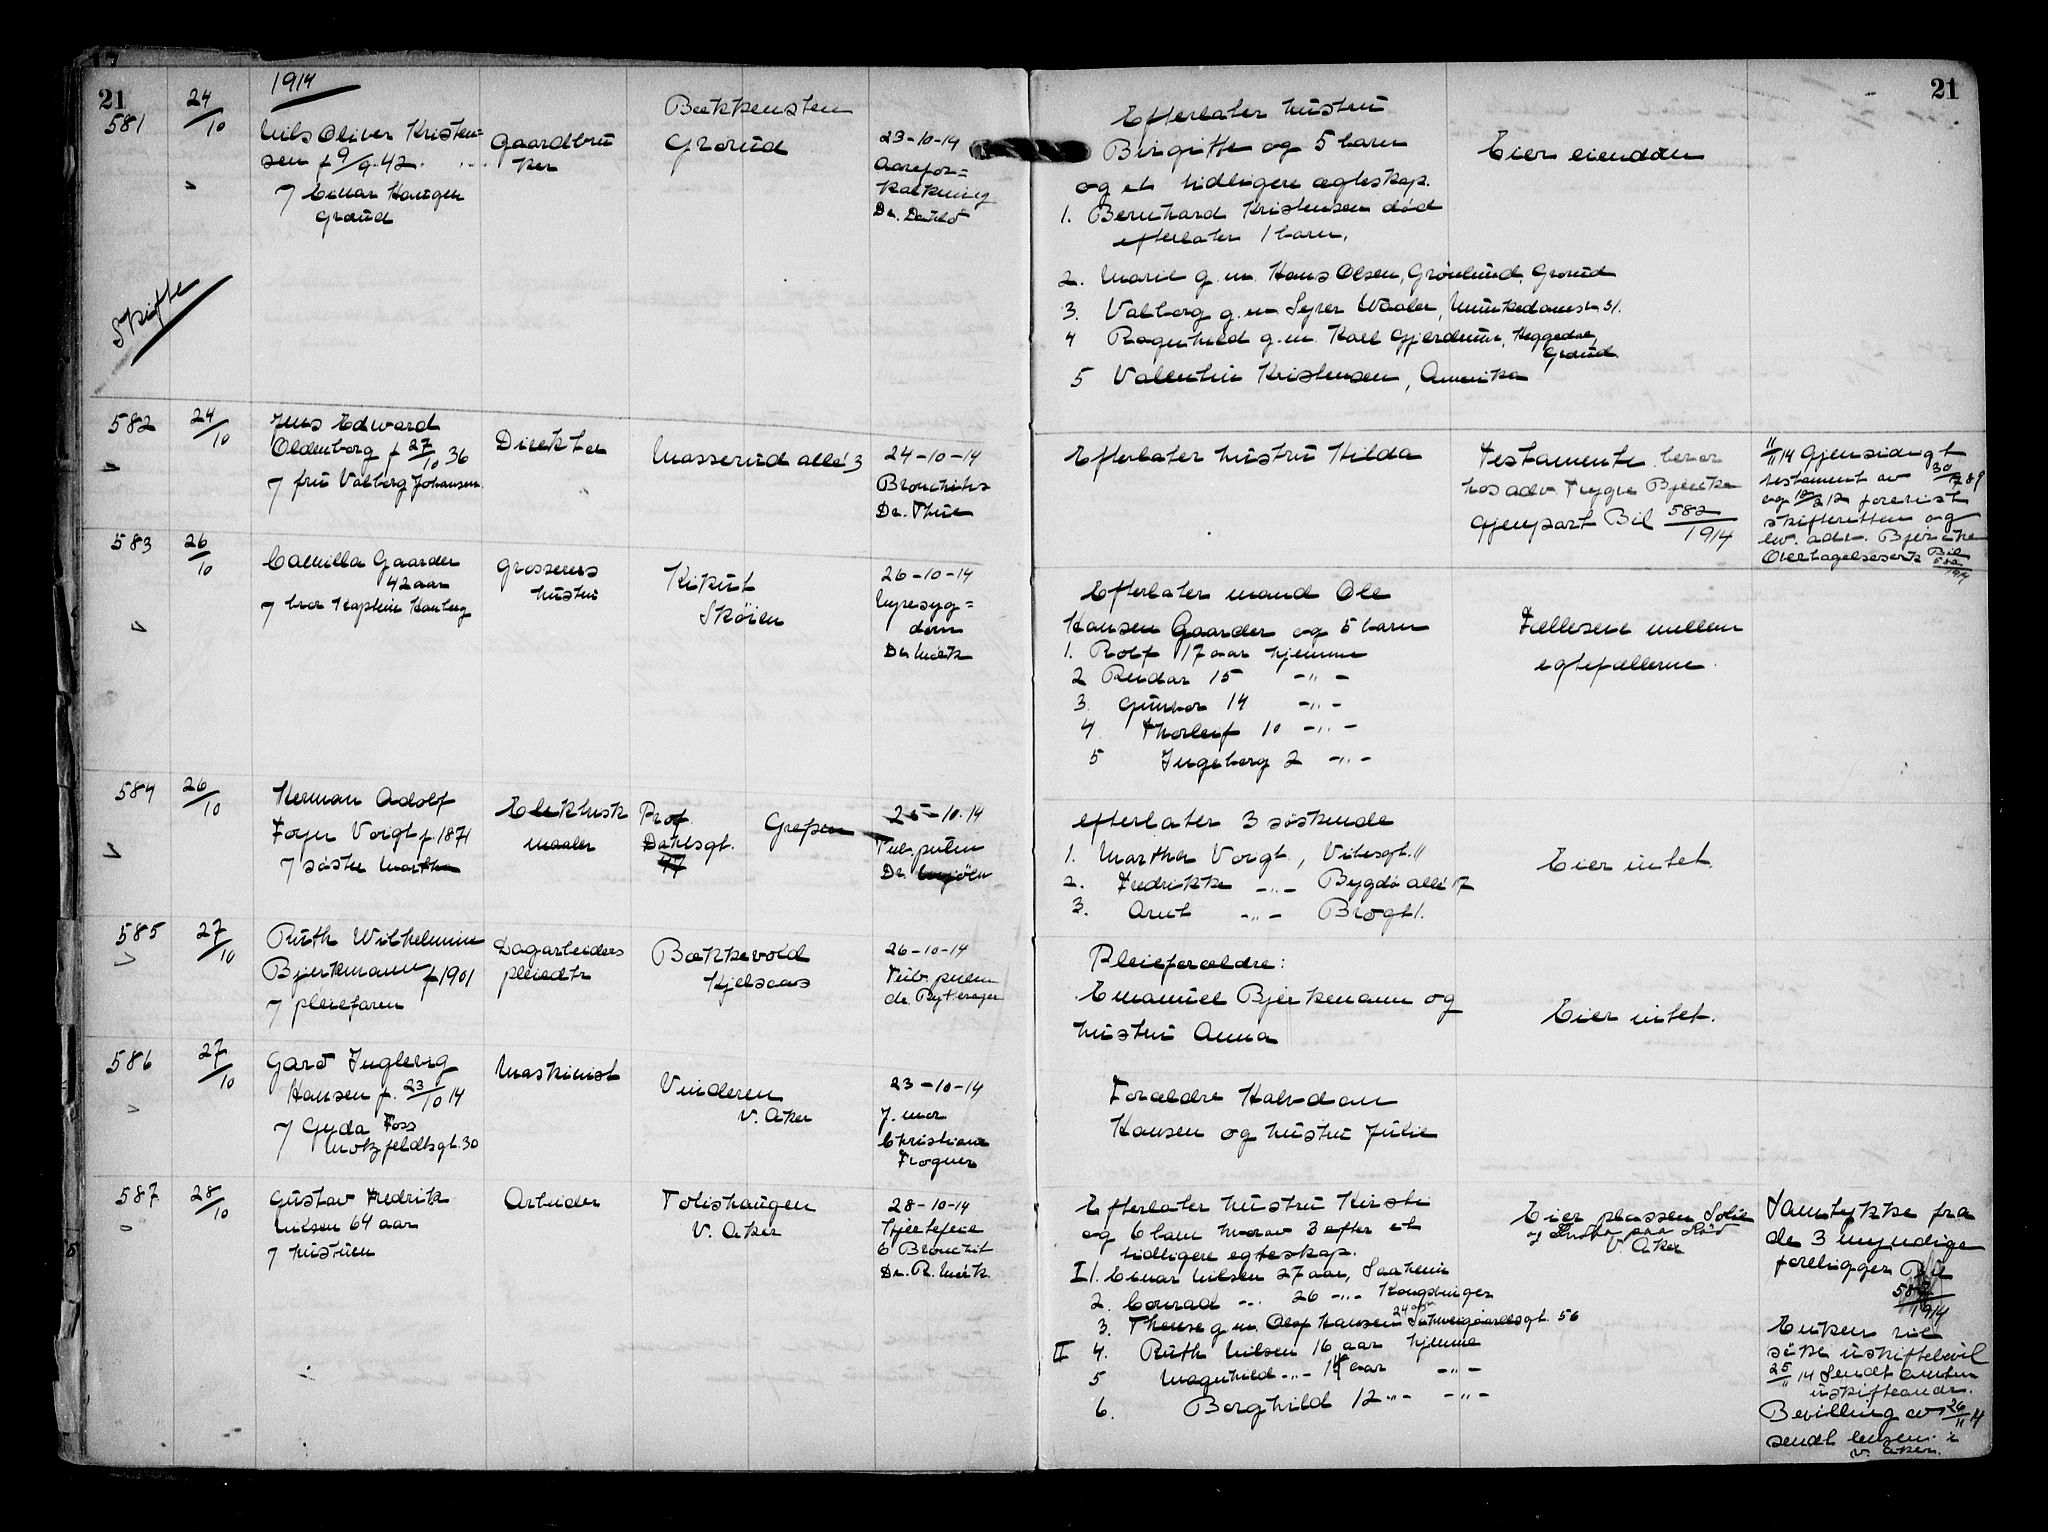 21
1914
21
581
24/10
Nils Oliver Kristen=
sen f 9/9 42.
7 Einar Haugen
Grorud
Gaardbru
ker
Bækkensten
Grorud
23-10-14
Aarefor=
kalkning
Dr. Dahlö
Efterlater hustru
Birgitte og 5 barn
og et tidligere ægteskap.
1. Bernhard Kristensen död
efterlater 1 barn.
2. Marie g.m. Hans Olsen, Grönlund, Grorud
3. Valborg g.m. Syver Waaler, Munkedamsv 51.
4 Ragnhild g.m. Karl Gjerdrum, Heggedse,
Grorud.
5 Valentin Kristensen, Amerika
Eier eiendom
Skifte
582
24/10
Jens Edward
Oldenborg f 27/10 36
7 fru Valborg Johansen
Direktör
Masserud allé 3
24-10-14
Bronchitis
Dr. Thue
Efterlater hustru Hilda
Testamente beror
hos adv. Trygve Bjerke
Gjenpart Bil 582/1914
11/11 14 Gjensidigt
testament av 30/12 89
og 12/2 12 forevist
skifteretten og
lev. adv. Bjerke
Overtagelseserk Bil
582/1914
583
26/10
Camilla Gaarder
42 aar
7 bror Kaptein Hauberg
Grosserers
hustru
Kikut
Sköien
26-10-14
Nyresyg=
dom
Dr. Mörk
Efterlater mand Ole
Hansen Gaarder og 5 barn
1. Rolf 17 aar hjemme
2 Reidar 15 -"-
3. Gunvor 14 -"-
4. Thorleif 10 -"-
5 Ingeborg 2 -"-
Fælleseie mellem
egtefællerne.
584
26/10
Herman Adolf
Foyn Voigt f. 1871
7 söster Martha
Elektrisk
maaler
Prof
Dahlsgt.
47
Grefsen
25-10-14
Tub. pulm
Dr.
efterlater 3 söskende
1. Martha Voigt, Vibesgt. 11
2. Fredrikke -"- Bygdö allé 17
3. Arnt -"- Brogt 1.
Eier intet.
585
27/10
Ruth Wilhelmine
Bjerkmann f 1901
7 pleiefaren
Dagarbeiders
pleiedtr
Bækkevold
Kjelsaas
26-10-14
Tub. pulm
dr. Rytterager
Pleieforældre:
Emanuel Bjerkmann og
hustru Anna
Eier intet.
586
27/10
Gard Inglevig
Hansen f. 23/10 14
7 Gyda Foss
Motzfeldtsgt. 30
Maskinist
Vinderen
V. Aker
23-10-14
J. mor
Christiane
Frogner
Forældre Halvdan
Hansen og hustru Julie
587
28/10
Gustav Fredrik
Nilsen 64 aar
7 hustruen
Arbeider
Tolishaugen
V. Aker
28-10-14
Hjertefeil
& Bronchit
Dr. R. Mörk.
Efterlater hustru Kirsti
og 6 barn hvorav 3 efter et
tidligere egteskap.
I 1. Einar Nilsen 27 aar, Saaheim
2. Conrad -"- 26 -"- Kongsvinger
24 aar
3. Therese g.m. Olaf Hansen Schweigaardsgt. 56
II 4. Ruth Nilsen 16 aar hjemme
5 Magnhild -"- 14 aar -"-
6. Borghild 12 -"- -"-
Eier plassen Solie
V. Aker
Samtykke fra
de 3 myndige
foreligger Bil
587/1914
Enken vil
söke uskiftebevil
25/11 14 Sendt amtm
uskifteandr.
Bevilling av 26/11 14
sendt lensm. i
V. Aker.